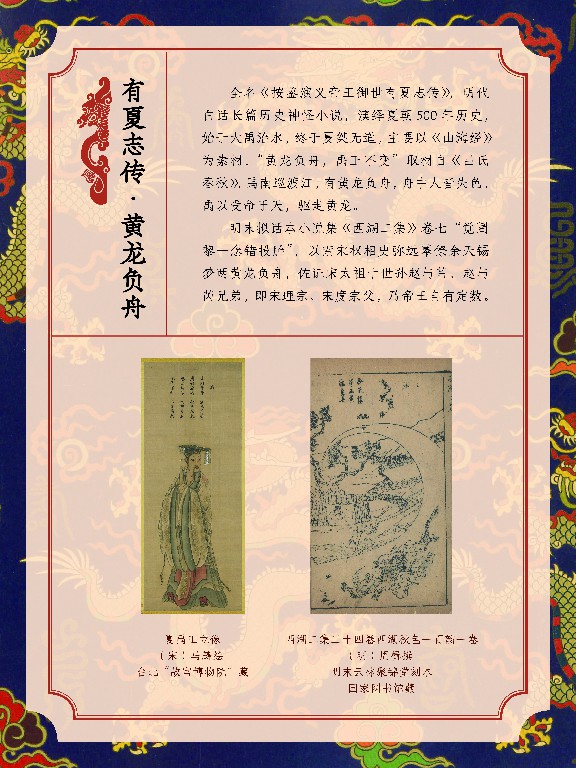 有夏志传·黄龙负舟
全名《按鉴演义帝王御世有夏志传》，明代
白话长篇历史神怪小说，演绎夏朝500年历史，
始于大禹治水，终于夏桀无道，主要以《山海经》
为素材，“黄龙负舟，禹王不变”取材自《吕氏
春秋》，禹南巡渡江，有黄龙负舟，舟中人皆失色，
禹以受命于天，驱走黄龙。
明末拟话本小说集《西湖二集》卷七“觉阇
黎一念错投胎”，以南宋权相史弥远幕僚余天锡
梦两黄龙负舟，佐证宋太祖十世孙赵与莒、赵与
芮兄弟，即宋理宗、宋度宗父，乃帝王自有定数。
夏禹王立像
（宋）马麟绘
台北“故宫博物院”藏
西湖二集三十四卷西湖秋色一百韵一卷
（明）周楫撰
明末云林聚锦堂刻本
国家图书馆藏